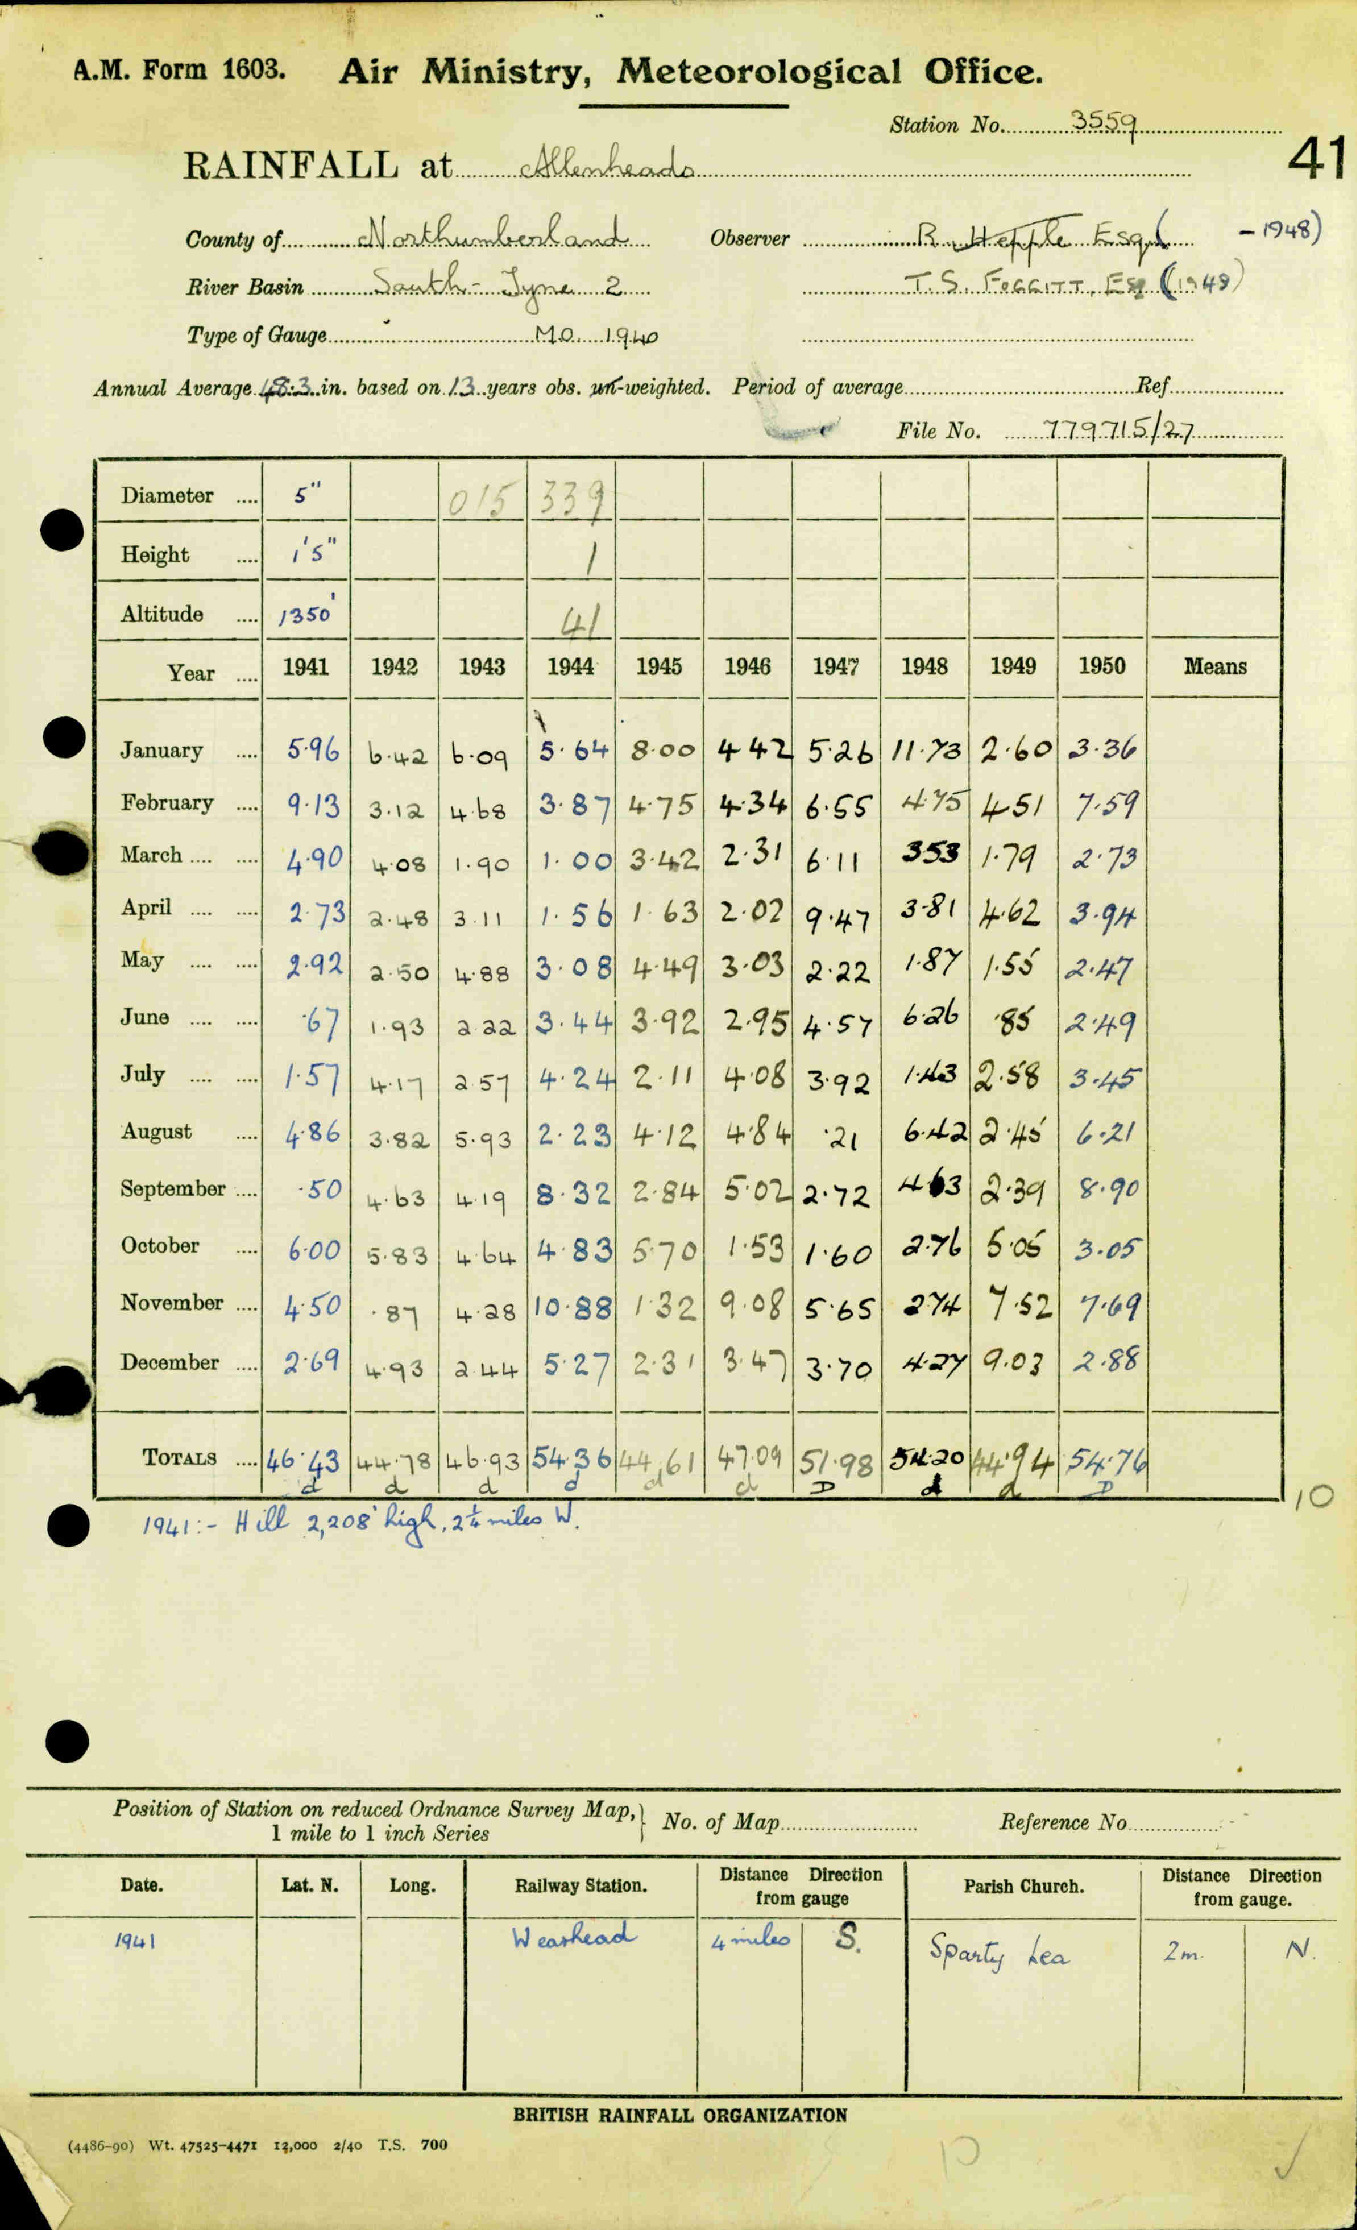 A.M. Form 1603. Air Ministry, Meteorological Office.
Station No. 3559
41
RAINFALL at Allenheads
County of Northumberland Observer R. Hepple Esq. ( - 1948)
River Basin South-Tyne 2 T. S. FOGGITT, Esq (1948)
Type of Gauge M.O. 1940
Annual Average 48.3 in. based on 13 years obs. un-weighted. Period of average Ref
File No. 779715/27
Diameter 5" 015 339
Height 1'5" 1
Altitude 1350' 41
Year 1941 1942 1943 1944 1945 1946 1947 1948 1949 1950 Means
January 5.96 6.42 6.09 5.64 8.00 4.42 5.26 11.73 2.60 3.36
February 9.13 3.12 4.68 3.87 4.75 4.34 6.55 4.75 4.51 7.59
March 4.90 4.08 1.90 1.00 3.42 2.31 6.11 3.53 1.79 2.73
April 2.73 2.48 3.11 1.56 1.63 2.02 9.47 3.81 4.62 3.94
May 2.92 2.50 4.88 3.08 4.49 3.03 2.22 1.87 1.55 2.47
June .67 1.93 2.22 3.44 3.92 2.95 4.57 6.26 .85 2.49
July 1.57 4.17 2.57 4.24 2.11 4.08 3.92 1.43 2.58 3.45
August 4.86 3.82 5.93 2.23 4.12 4.84 .21 6.42 2.45 6.21
September .50 4.63 4.19 8.32 2.84 5.02 2.72 4.63 2.39 8.90
October 6.00 5.83 4.64 4.83 5.70 1.53 1.60 2.76 5.05 3.05
November 4.50 .87 4.28 10.88 1.32 9.08 5.65 2.74 7.52 7.69
December 2.69 4.93 2.44 5.27 2.31 3.47 3.70 4.27 9.03 2.88
TOTALS 46.43 44.78 46.93 54.36 44.61 47.09 51.98 54.20 44.94 54.76
d d d d d d D d d D
10
1941:- Hill 2,208' high, 2¼ miles W.
Position of Station on reduced Ordnance Survey Map, 1 mile to 1 inch Series } No. of Map Reference No
Date. Lat. N. Long. Railway Station. Distance from gauge Direction Parish Church. Distance Direction from gauge.
1941 Wearhead 4 miles S. Sparty Lea 2m. N.
BRITISH RAINFALL ORGANIZATION
(4486-90) Wt. 47525-4471 12,000 2/40 T.S. 700